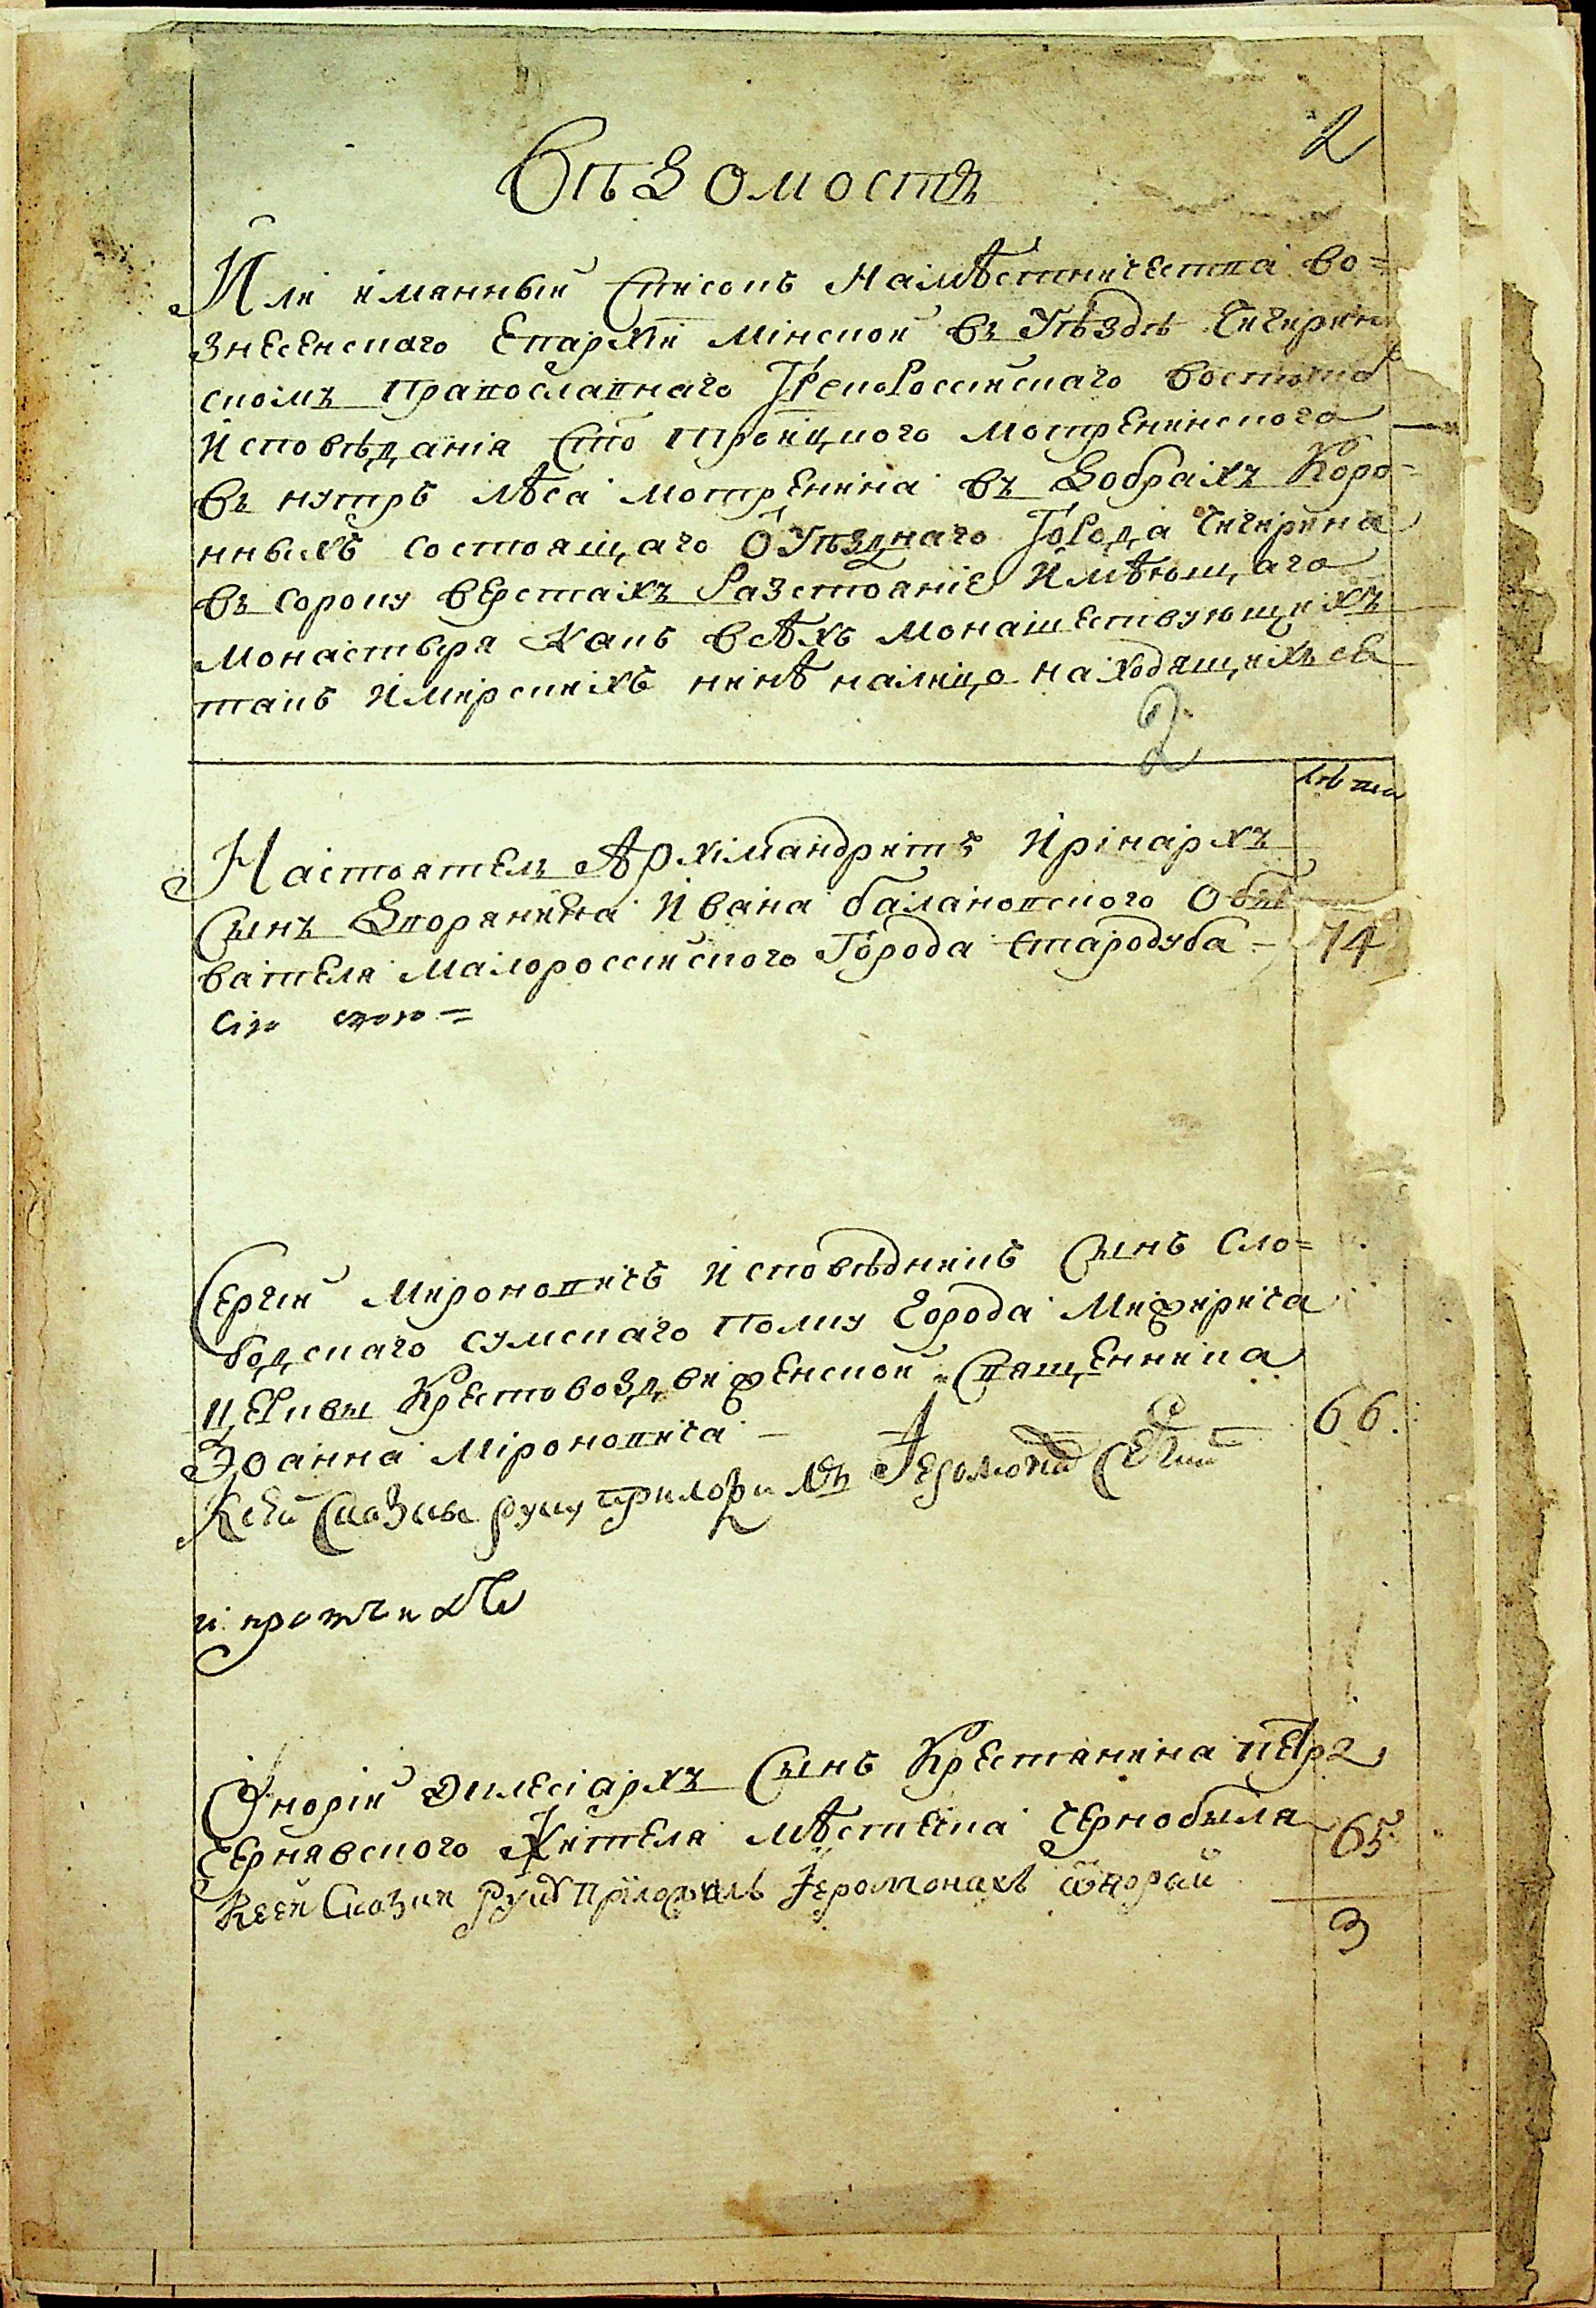 2
Вѣдомость
Или имянный Списокъ Намѣстничества Во=
знесенскаго Епархіи Мінской въ Уѣздѣ Чигирин
скомъ Православнаго Грекороссійскаго Восточно
Исповѣданія Сто Троицкого Мотренинского
въ нутрѣ лѣса Мотренина въ Добрахъ Коро=
нныхъ состоящаго ѿ Уѣзднаго Города Чигирина
въ сороку верстахъ Разстояніе Имѣющаго
монастыря Какъ всѣхъ монашествующихъ
такъ Имирскихъ нинѣ налицо находящихсь
2
Лѣта
Настоятель Архімандритъ Ирінархъ
Сынъ Дворянина Ивана балановского Обы
вателя Малороссійского Города Стародуба —
74
Сергій Мироновичъ Исповѣдникъ Сынъ Сло=
бодскаго сумскаго Полку Города Межирича
Церквы Крестовоздвиженской Священника
Іоанна Міроновича —
66.
Ксей Сказкы руку приложилъ Іеромонах Сергій
Онорій Эклесіархъ Сынъ Крестянина петра
Чернявского Жителя мѣстечка Чернобыля
65
Ксей Сказки руку Приложилъ Іеромонахъ Ѡнорій
3